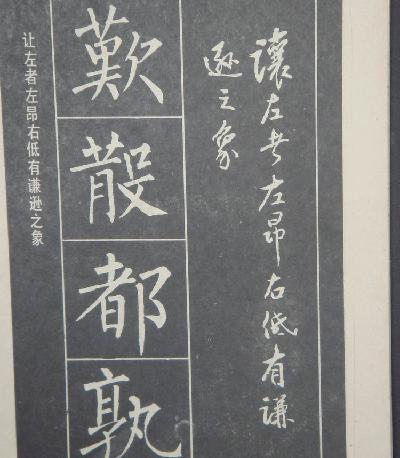 讓左者左昂右低有謙
遜之象
歎
散
都
孰
让左者左昂右低有谦逊之象